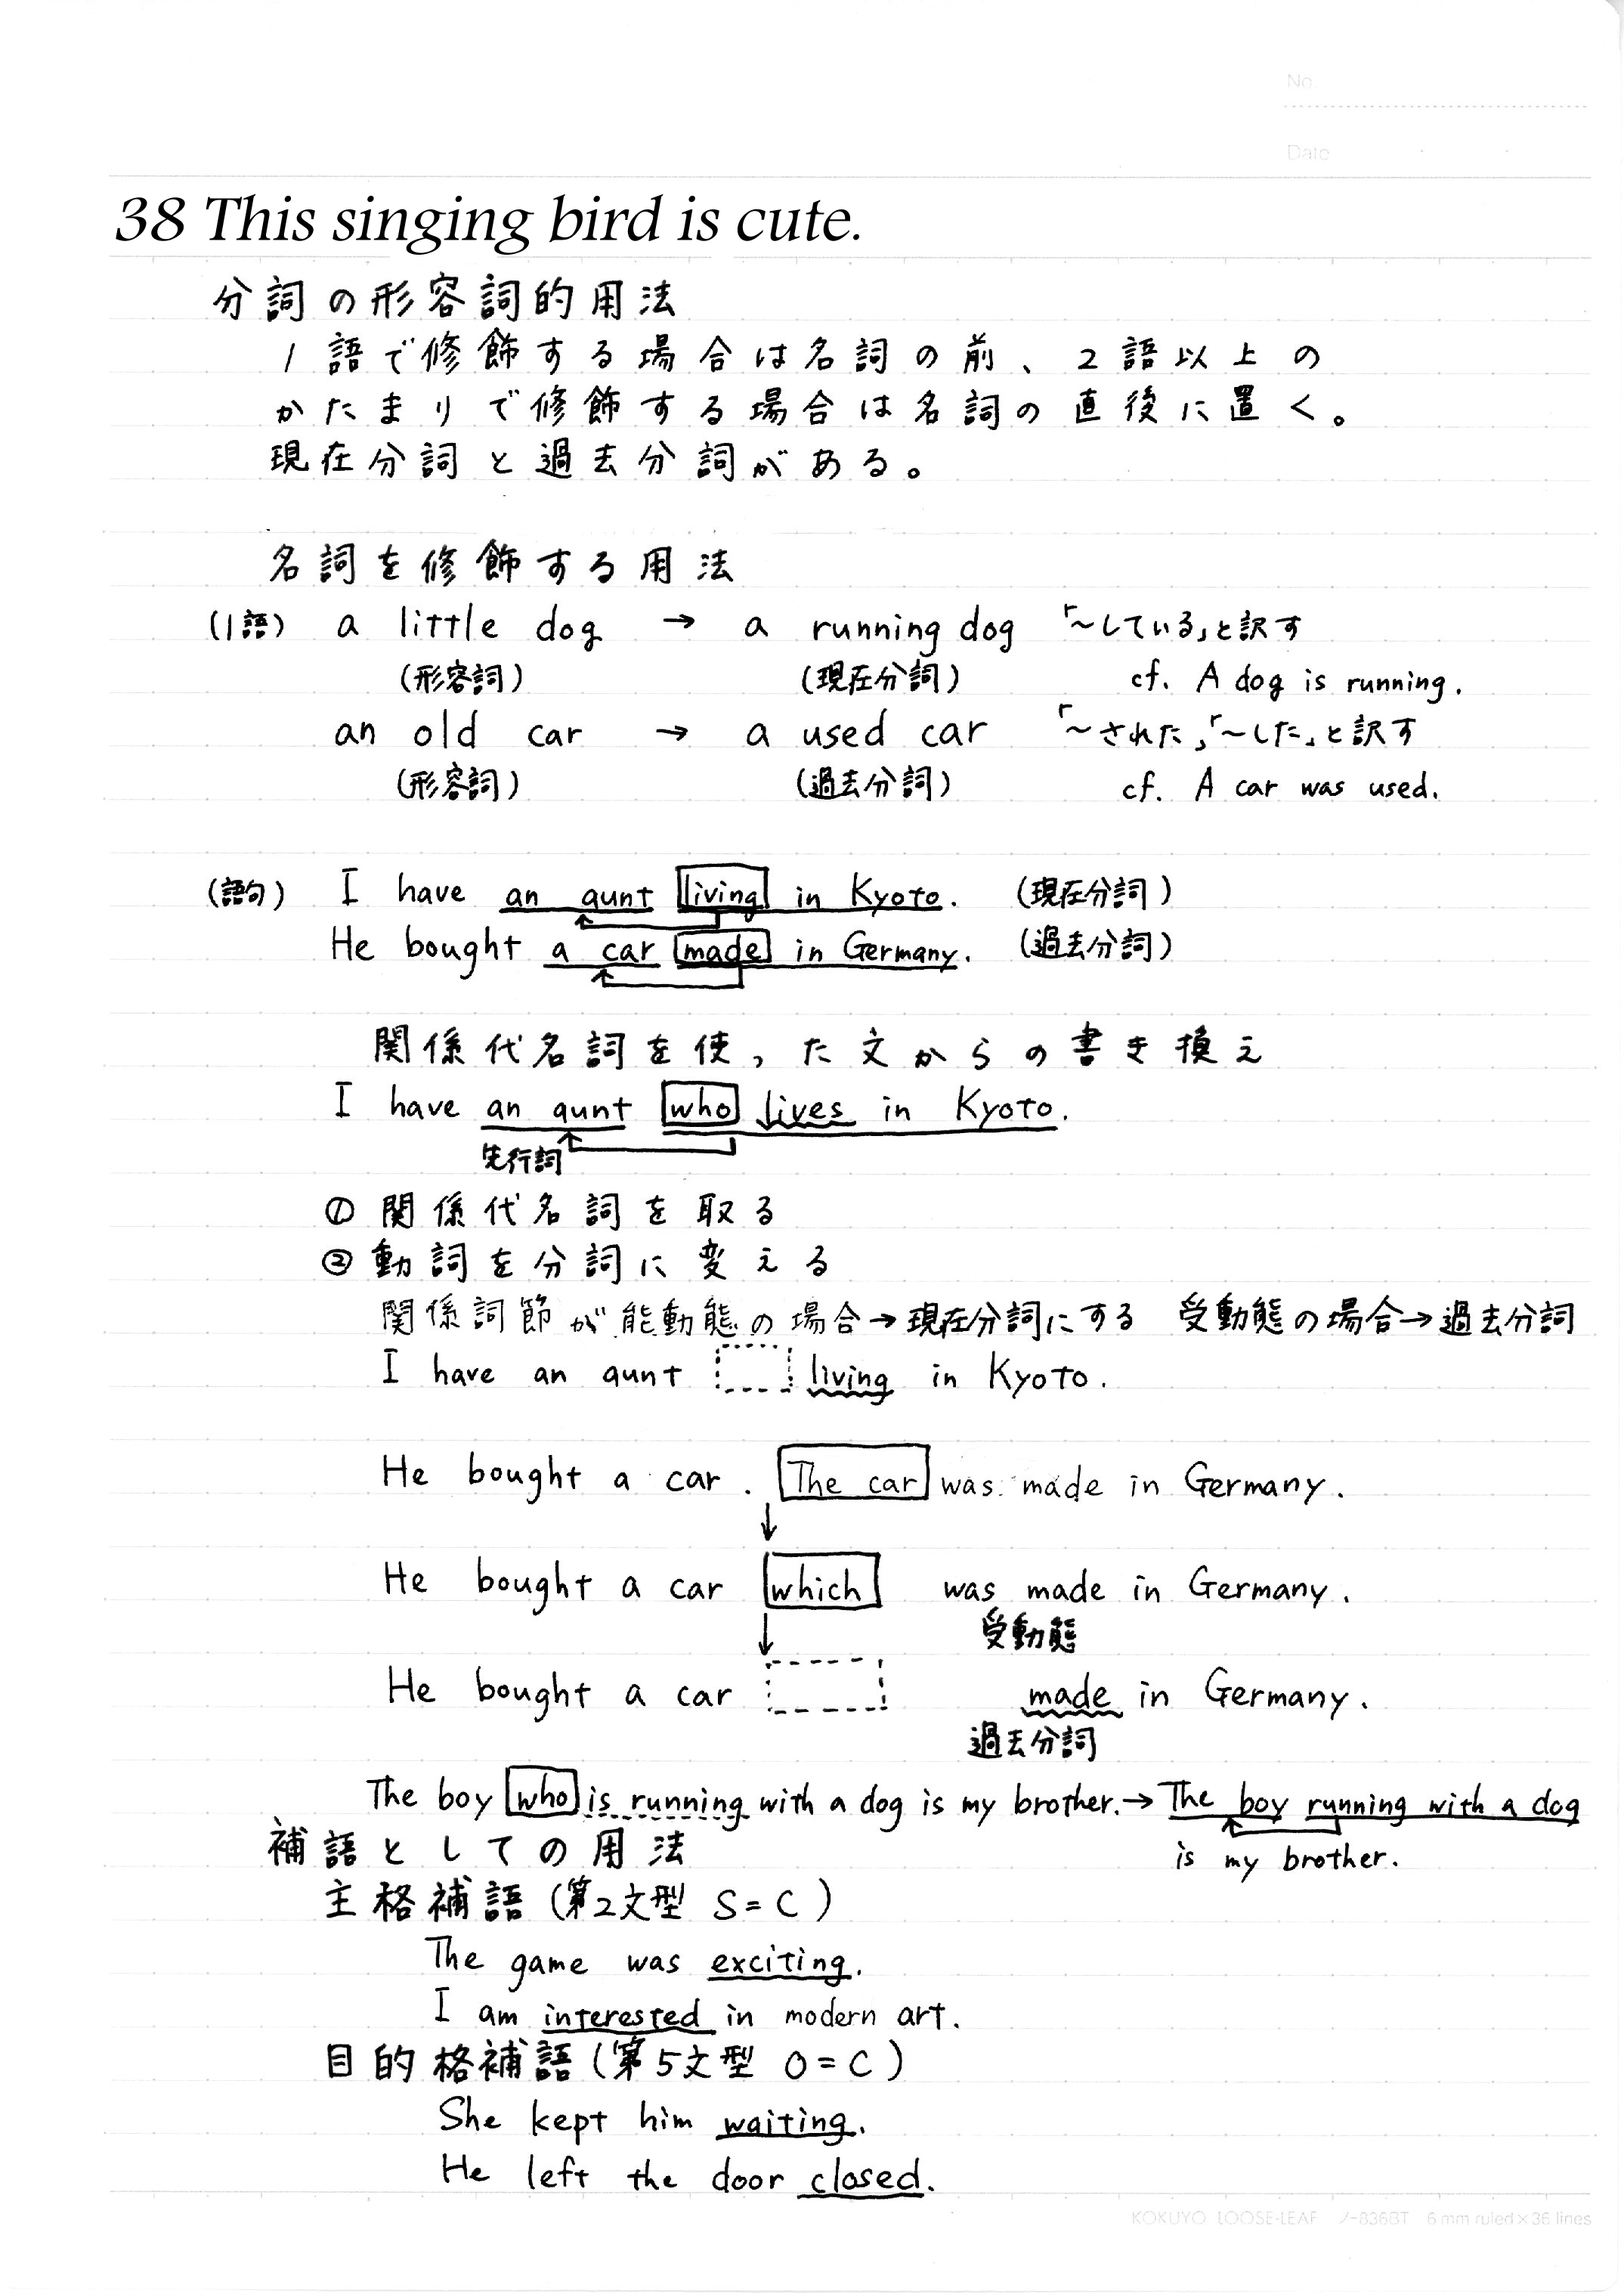 No.
Date
38 This singing bird is cute.
分詞の形容詞的用法
1語で修飾する場合は名詞の前、2語以上の
かたまりで修飾する場合は名詞の直後に置く。
現在分詞と過去分詞がある。
名詞を修飾する用法
(1語) a little dog → a running dog 「～している」と訳す
(形容詞) (現在分詞) cf. A dog is running.
an old car → a used car 「～された」「～した」と訳す
(形容詞) (過去分詞) cf. A car was used.
(語句) I have an aunt living in Kyoto. (現在分詞)
He bought a car made in Germany. (過去分詞)
関係代名詞を使った文からの書き換え
I have an aunt who lives in Kyoto.
先行詞
① 関係代名詞を取る
② 動詞を分詞に変える
関係詞節が能動態の場合→現在分詞にする 受動態の場合→過去分詞
I have an aunt living in Kyoto.
He bought a car. The car was made in Germany.
↓
He bought a car which was made in Germany.
↓ 受動態
He bought a car made in Germany.
過去分詞
The boy who is running with a dog is my brother.→ The boy running with a dog
is my brother.
補語としての用法
主格補語(第2文型 S=C)
The game was exciting.
I am interested in modern art.
目的格補語(第5文型 O=C)
She kept him waiting.
He left the door closed.
KOKUYO LOOSE-LEAF ノ-836BT 6 mm ruled×36 lines